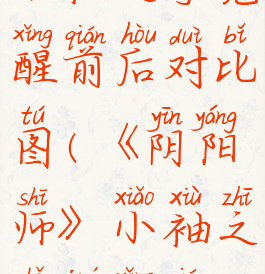 xǐng qián hòu duì bǐ
醒前后对比
tú yīn yáng
图(《阴阳
shī xiǎo xiù zhī
师》小袖之